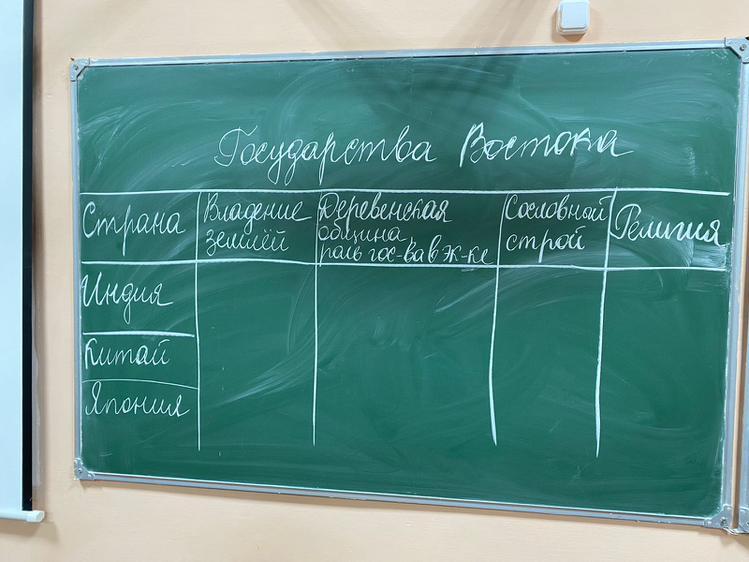 Государства Востока
Страна
Владение
землёй
Деревенская
община
роль гос-ва в эк-ке
Сословный
строй
Религия
Индия
Китай
Япония